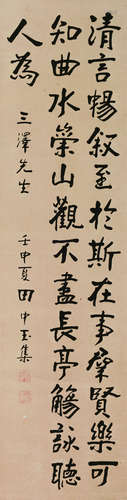 清言暢敘至於斯在事羣賢樂可
知曲水崇山觀不盡長亭觴詠聽
人為
三澤先生
壬申夏田中玉集